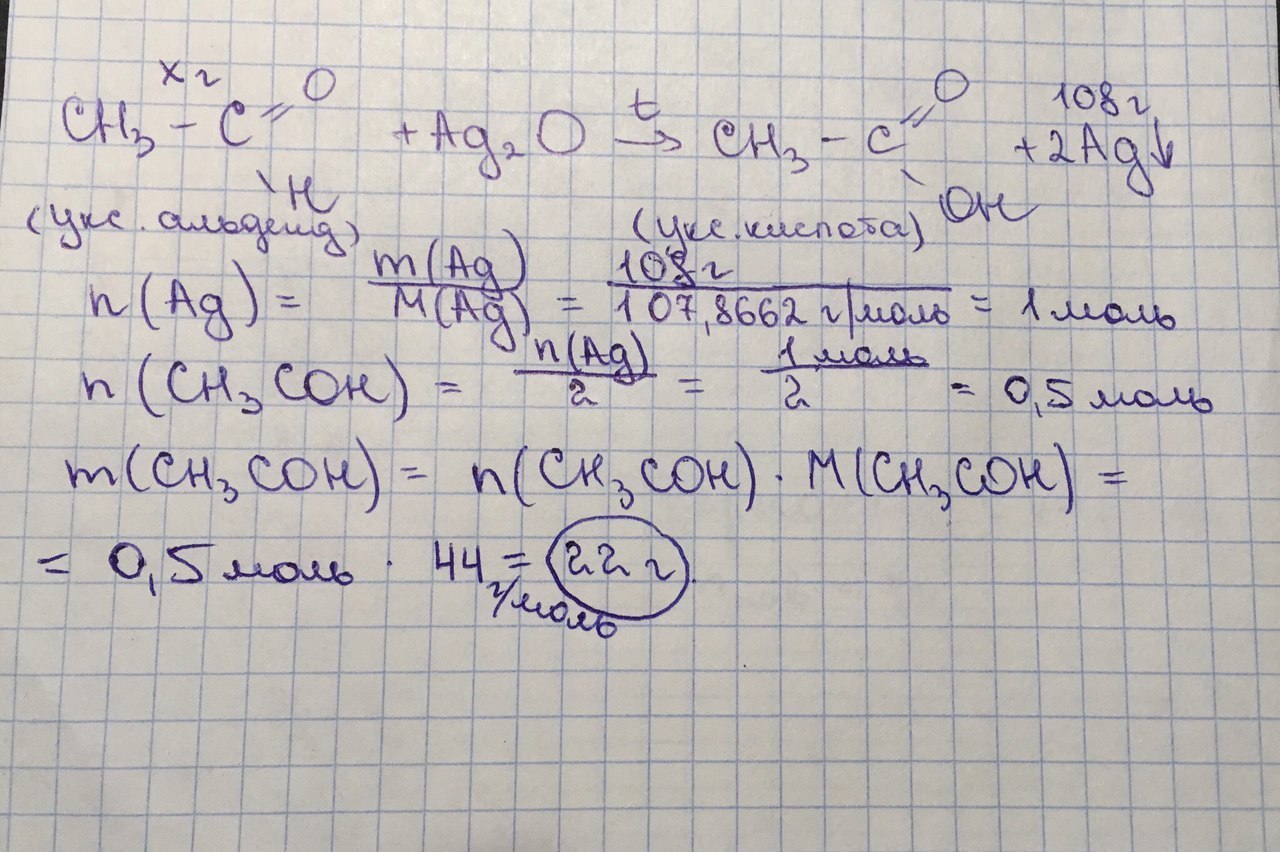 x г
CH₃ – C = O + Ag₂O →ᵗ CH₃ – C = O + 2Ag↓
108 г
\ H \ OH
(укс. альдегид) (укс. кислота)
n(Ag) = m(Ag) / M(Ag) = 108 г / 107,8662 г/моль = 1 моль
n(CH₃COH) = n(Ag) / 2 = 1 моль / 2 = 0,5 моль
m(CH₃COH) = n(CH₃COH) · M(CH₃COH) =
= 0,5 моль · 44 г/моль = 22 г